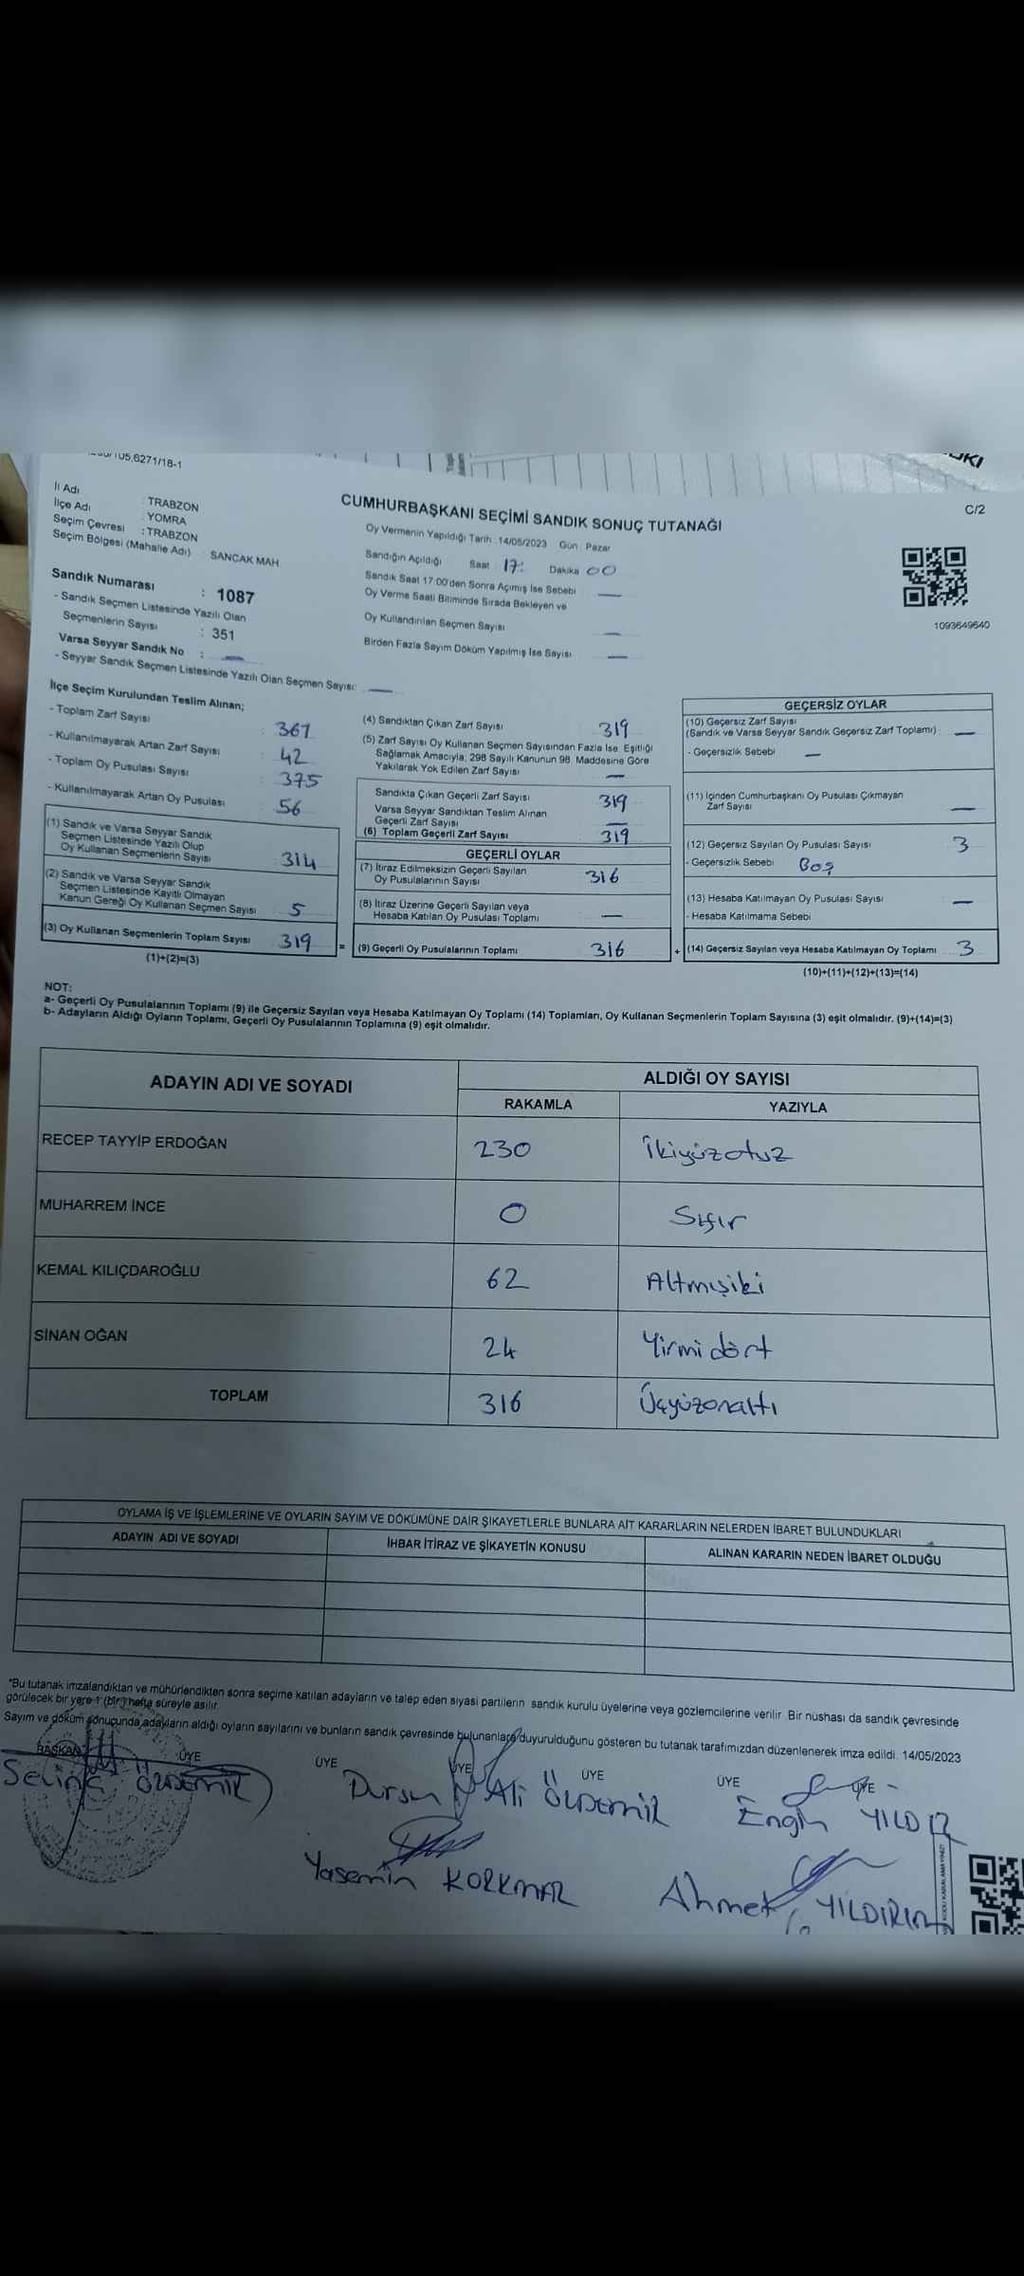 105.6271/18-1
C/2
İl Adı : TRABZON
İlçe Adı : YOMRA
Seçim Çevresi : TRABZON
Seçim Bölgesi (Mahalle Adı) : SANCAK MAH
Sandık Numarası : 1087
- Sandık Seçmen Listesinde Yazılı Olan
Seçmenlerin Sayısı : 351
Varsa Seyyar Sandık No : —
- Seyyar Sandık Seçmen Listesinde Yazılı Olan Seçmen Sayısı: —
CUMHURBAŞKANI SEÇİMİ SANDIK SONUÇ TUTANAĞI
Oy Vermenin Yapıldığı Tarih : 14/05/2023 Gün : Pazar
Sandığın Açıldığı Saat 17: Dakika 00
Sandık Saat 17:00'den Sonra Açılmış İse Sebebi —
Oy Verme Saati Bitiminde Sırada Bekleyen ve
Oy Kullandırılan Seçmen Sayısı —
Birden Fazla Sayım Döküm Yapılmış İse Sayısı —
1093649640
İlçe Seçim Kurulundan Teslim Alınan;
- Toplam Zarf Sayısı : 361
- Kullanılmayarak Artan Zarf Sayısı : 42
- Toplam Oy Pusulası Sayısı : 375
- Kullanılmayarak Artan Oy Pusulası : 56
(1) Sandık ve Varsa Seyyar Sandık
Seçmen Listesinde Yazılı Olup
Oy Kullanan Seçmenlerin Sayısı 314
(2) Sandık ve Varsa Seyyar Sandık
Seçmen Listesinde Kayıtlı Olmayan
Kanun Gereği Oy Kullanan Seçmen Sayısı 5
(3) Oy Kullanan Seçmenlerin Toplam Sayısı 319
(1)+(2)=(3)
(4) Sandıktan Çıkan Zarf Sayısı 319
(5) Zarf Sayısı Oy Kullanan Seçmen Sayısından Fazla İse Eşitliği
Sağlamak Amacıyla, 298 Sayılı Kanunun 98. Maddesine Göre
Yakılarak Yok Edilen Zarf Sayısı —
Sandıkta Çıkan Geçerli Zarf Sayısı 319
Varsa Seyyar Sandıktan Teslim Alınan
Geçerli Zarf Sayısı —
(6) Toplam Geçerli Zarf Sayısı 319
GEÇERLİ OYLAR
(7) İtiraz Edilmeksizin Geçerli Sayılan
Oy Pusulalarının Sayısı 316
(8) İtiraz Üzerine Geçerli Sayılan veya
Hesaba Katılan Oy Pusulası Toplamı —
= (9) Geçerli Oy Pusulalarının Toplamı 316
GEÇERSİZ OYLAR
(10) Geçersiz Zarf Sayısı
(Sandık ve Varsa Seyyar Sandık Geçersiz Zarf Toplamı) : —
- Geçersizlik Sebebi —
(11) İçinden Cumhurbaşkanı Oy Pusulası Çıkmayan
Zarf Sayısı —
(12) Geçersiz Sayılan Oy Pusulası Sayısı 3
- Geçersizlik Sebebi Boş
(13) Hesaba Katılmayan Oy Pusulası Sayısı —
- Hesaba Katılmama Sebebi
+ (14) Geçersiz Sayılan veya Hesaba Katılmayan Oy Toplamı 3
(10)+(11)+(12)+(13)=(14)
NOT:
a- Geçerli Oy Pusulalarının Toplamı (9) ile Geçersiz Sayılan veya Hesaba Katılmayan Oy Toplamı (14) Toplamları, Oy Kullanan Seçmenlerin Toplam Sayısına (3) eşit olmalıdır. (9)+(14)=(3)
b- Adayların Aldığı Oyların Toplamı, Geçerli Oy Pusulalarının Toplamına (9) eşit olmalıdır.
ADAYIN ADI VE SOYADI
ALDIĞI OY SAYISI
RAKAMLA YAZIYLA
RECEP TAYYİP ERDOĞAN 230 İkiyüzotuz
MUHARREM İNCE 0 Sıfır
KEMAL KILIÇDAROĞLU 62 Altmışiki
SİNAN OĞAN 24 Yirmi dört
TOPLAM 316 Üçyüzonaltı
OYLAMA İŞ VE İŞLEMLERİNE VE OYLARIN SAYIM VE DÖKÜMÜNE DAİR ŞİKAYETLERLE BUNLARA AİT KARARLARIN NELERDEN İBARET BULUNDUKLARI
ADAYIN ADI VE SOYADI İHBAR İTİRAZ VE ŞİKAYETİN KONUSU ALINAN KARARIN NEDEN İBARET OLDUĞU
*Bu tutanak imzalandıktan ve mühürlendikten sonra seçime katılan adayların ve talep eden siyasi partilerin sandık kurulu üyelerine veya gözlemcilerine verilir. Bir nüshası da sandık çevresinde
görülecek bir yere 1 (bir) hafta süreyle asılır.
Sayım ve döküm sonucunda adayların aldığı oyların sayılarını ve bunların sandık çevresinde bulunanlara duyurulduğunu gösteren bu tutanak tarafımızdan düzenlenerek imza edildi. 14/05/2023
BAŞKAN ÜYE ÜYE ÜYE ÜYE ÜYE ÜYE
ÖZDEMİR Dursun Ali ÖZDEMİR Engin YILDIZ
Yasemin KORKMAZ Ahmet YILDIRIM